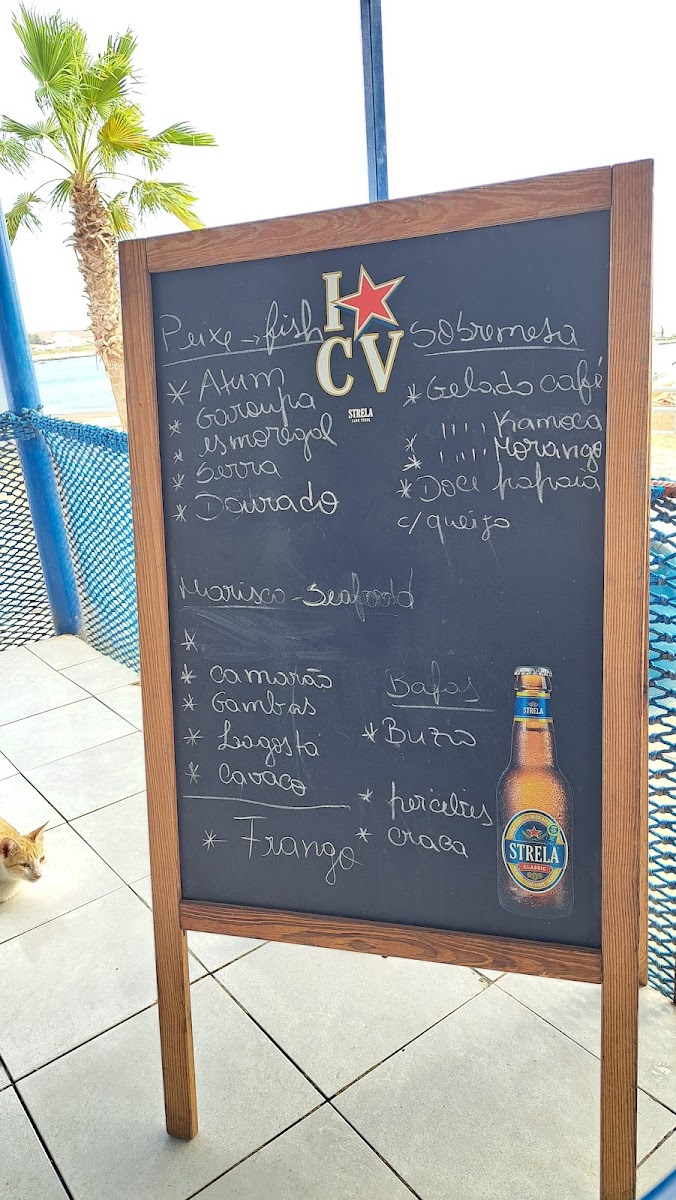 I ★
CV
STRELA
CABO VERDE
Peixe → fish
* Atum
* Garoupa
* esmoregal
* Serra
* Dourado
Sobremesa
* Gelado café
* '' '' Kamoca
* '' '' Morango
* Doce papaia
c/ queijo
Marisco - Seafood
*
* camarão
* Gambas
* Lagosta
* Cavaco
* Frango
Bafas
* Buzio
* percebes
* craca
STRELA
STRELA
CLASSIC